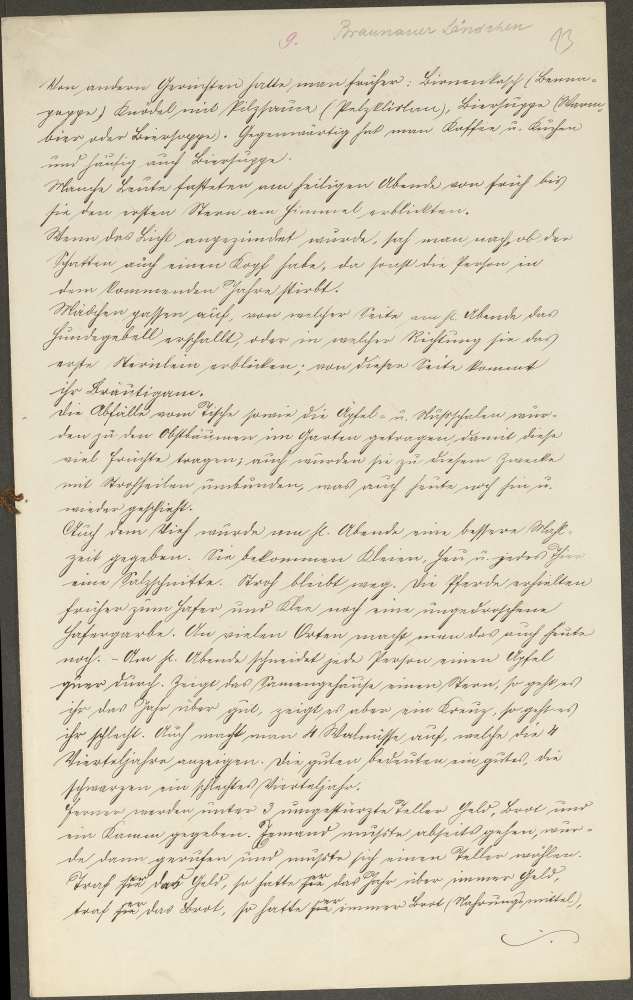 9. Braunauer Ländchen 13
Von andern Gerichten hatte man früher: Birnenkoch (Birna-
pappe) Knödel mit Pilzsauce Biersuppe (Warm-
bier oder Biersoppe). Gegenwärtig hat man Kaffee u. Kuchen
und häufig auch Biersuppe.
Manche Leute fasteten am heiligen Abende von früh bis
sie den ersten Stern am Himmel erblickten.
Wenn das Licht angezündet wurde, sah man nach, ob der
Schatten auch einen Kopf habe, da sonst die Person in
dem kommenden Jahre stirbt.
Mädchen passen auf, von welcher Seite am hl. Abende das
Hundegebell erschallt oder in welcher Richtung sie das
erste Sternlein erblicken; von dieser Seite kommt
ihr Bräutigam.
Die Abfälle vom Tische sowie die Äpfel- u. Nußschalen wur-
den zu den Obstbäumen im Garten getragen, damit diese
viel Früchte tragen; auch wurden sie zu diesem Zwecke
mit Strohseilen umbunden, was auch heute noch hin u.
wieder geschieht.
Auch dem Vieh wurde am hl. Abende eine bessere Mahl-
zeit gegeben. Sie bekommen Kleien, Heu u. jedes Thier
eine Salzschnitte. Stroh bleibt weg. Die Pferde erhielten
früher zum Hafer und Klee noch eine ungedroschene
Hafergarbe. An vielen Orten macht man das auch heute
noch. - Am hl. Abende schneidet jede Person einen Apfel
quer durch. Zeigt das Samengehäuse einen Stern, so geht es
ihr das Jahr über gut, zeigt es aber ein Kreuz, so geht es
ihr schlecht. Auch macht man 4 Walnüsse auf, welche die 4
Vierteljahre anzeigen. Die guten bedeuten ein gutes, die
schwarzen ein schlechtes Vierteljahr.
Ferner werden unter 3 umgestürzte Teller Geld, Brot und
ein Kamm gegeben. Jemand mußte abseits gehen, wur-
de dann gerufen und mußte sich einen Teller wählen.
Traf er das Geld, so hatte er das Jahr über immer Geld,
traf er das Brot, so hatte er immer Brot (Nahrungsmittel),